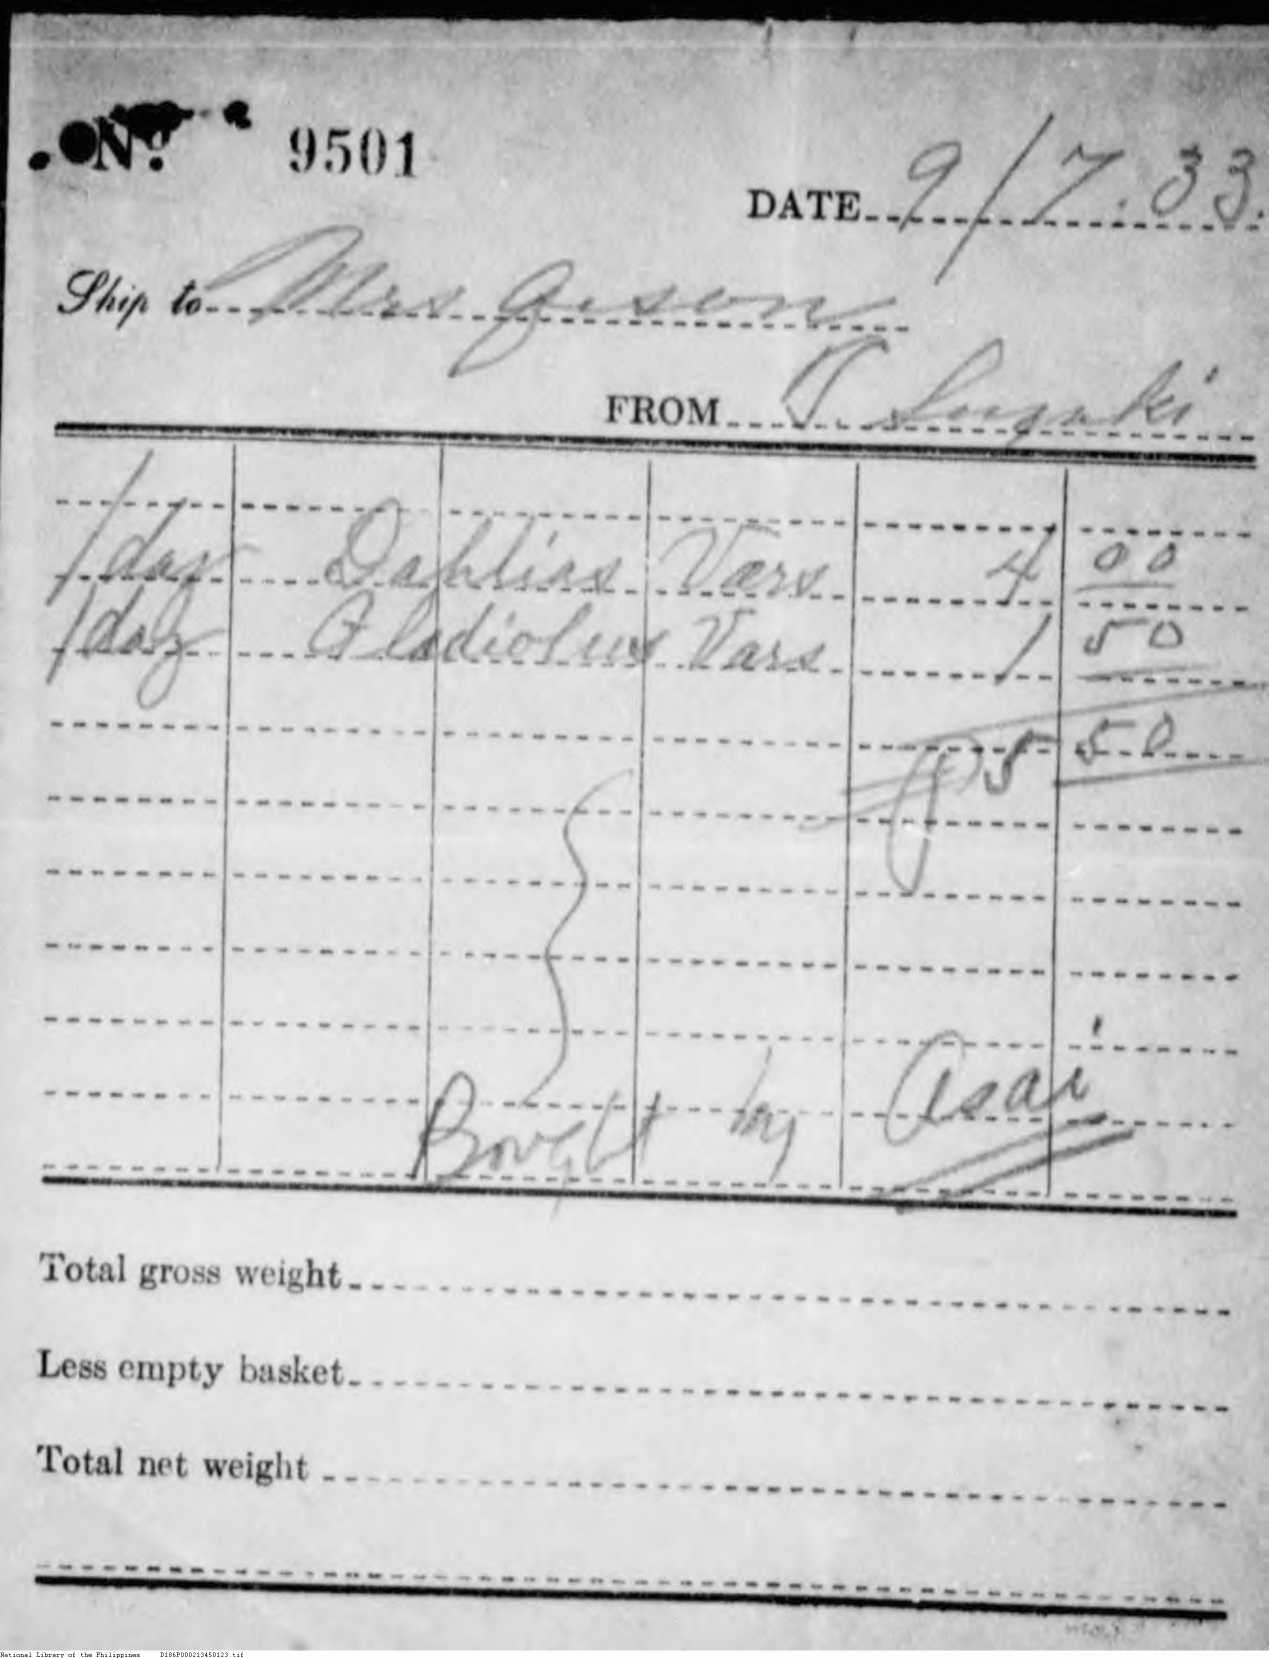 No. 9501
DATE 9/7.33.
Ship to Mrs Geson
FROM T. Suzuki
1 doz Dahlias Vars 4 00
1 doz Gladiolus Vars 1 50
₱5 50
Bought by Asai
Total gross weight
Less empty basket
Total net weight
National Library of the Philippines D186P000213450123.tif